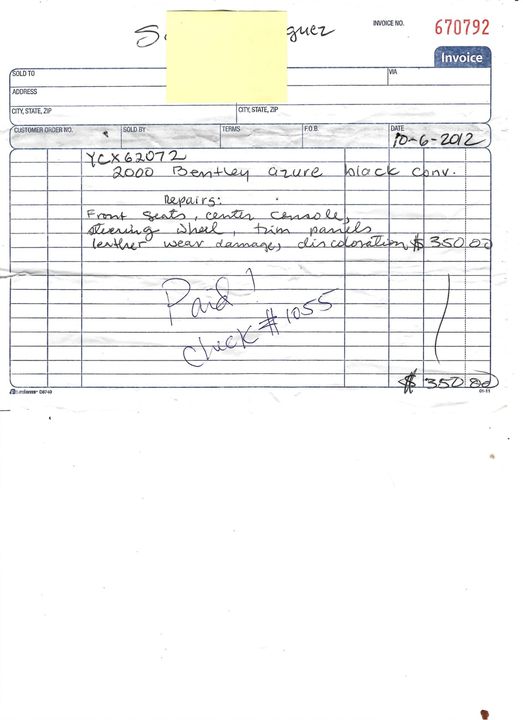 S
guez
INVOICE NO.
670792
Invoice
SOLD TO
VIA
ADDRESS
CITY, STATE, ZIP
CITY, STATE, ZIP
CUSTOMER ORDER NO.
SOLD BY
TERMS
F.O.B.
DATE
10-6-2012
YCX62072
2000 Bentley azure black conv.
Repairs:
Front seats, center console,
steering wheel, trim panels
leather wear damage, discoloration $350.00
Paid!
check #1055
$350.00
D8740
01-11